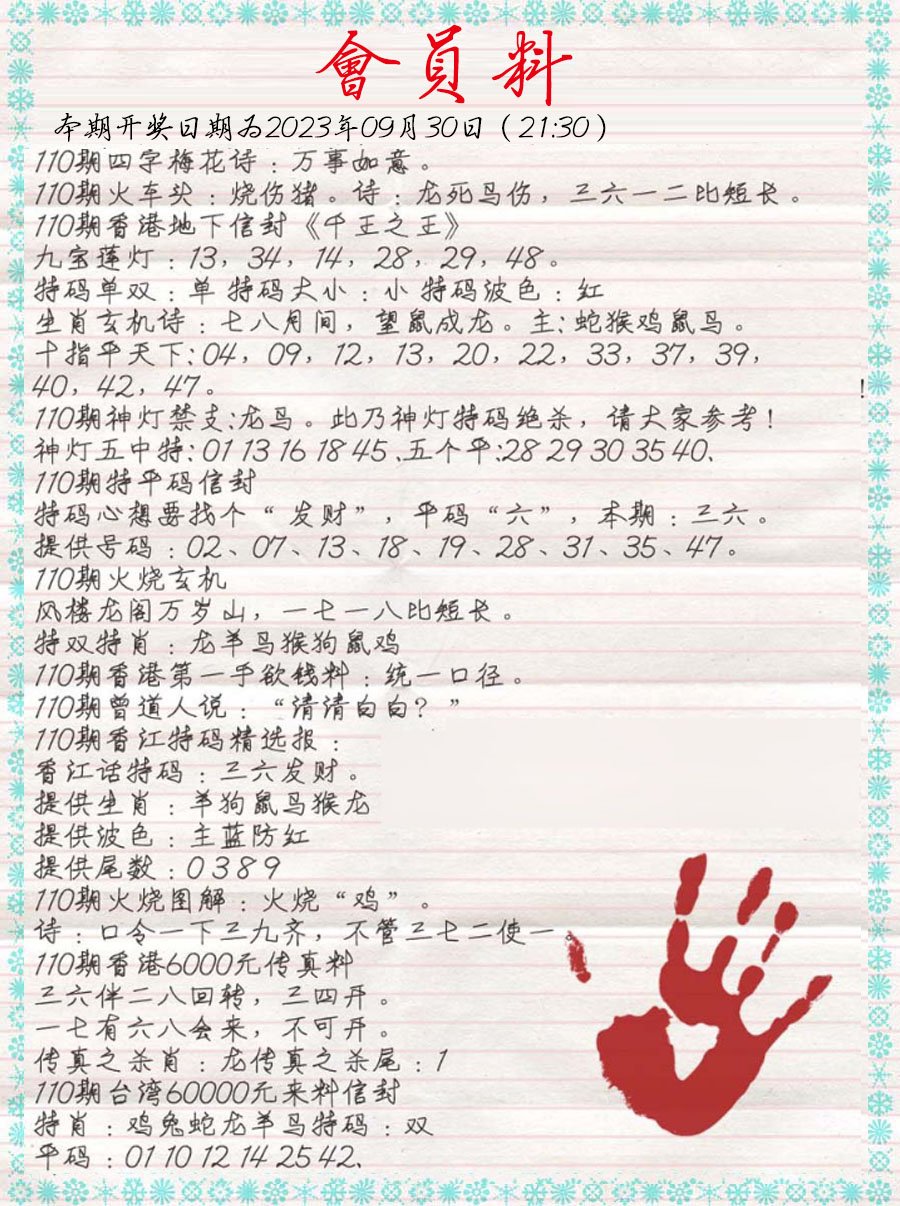 會員料
本期开奖日期为2023年09月30日（21:30）
110期四字梅花诗：万事如意。
110期火车头：烧伤猪。诗：龙死鸟伤，三六一二比短长。
110期香港地下信封《千王之王》
九宝莲灯：13，34，14，28，29，48。
特码单双：单 特码大小：小 特码波色：红
生肖玄机诗：七八月间，望鼠成龙。主：蛇猴鸡鼠鸟。
十指平天下：04，09，12，13，20，22，33，37，39，
40，42，47。
!
110期神灯禁支：龙鸟。此乃神灯特码绝杀，请大家参考！
神灯五中特：01 13 16 18 45、五个平：28 29 30 35 40、
110期特平码信封
特码心想要找个“发财”，平码“六”，本期：三六。
提供号码：02、07、13、18、19、28、31、35、47。
110期火烧玄机
风楼龙阁万岁山，一七一八比短长。
特双特肖：龙羊鸟猴狗鼠鸡
110期香港第一手欲钱料：统一口径。
110期曾道人说：“清清白白？”
110期香江特码精选报：
香江话特码：三六发财。
提供生肖：羊狗鼠鸟猴龙
提供波色：主蓝防红
提供尾数：0 3 8 9
110期火烧图解：火烧“鸡”。
诗：口令一下三九齐，不管三七二使一。
110期香港6000元传真料
三六伴二八回转，三四开。
一七有六八会来，不可开。
传真之杀肖：龙传真之杀尾：1
110期台湾60000元来料信封
特肖：鸡兔蛇龙羊鸟特码：双
平码：01 10 12 14 25 42、